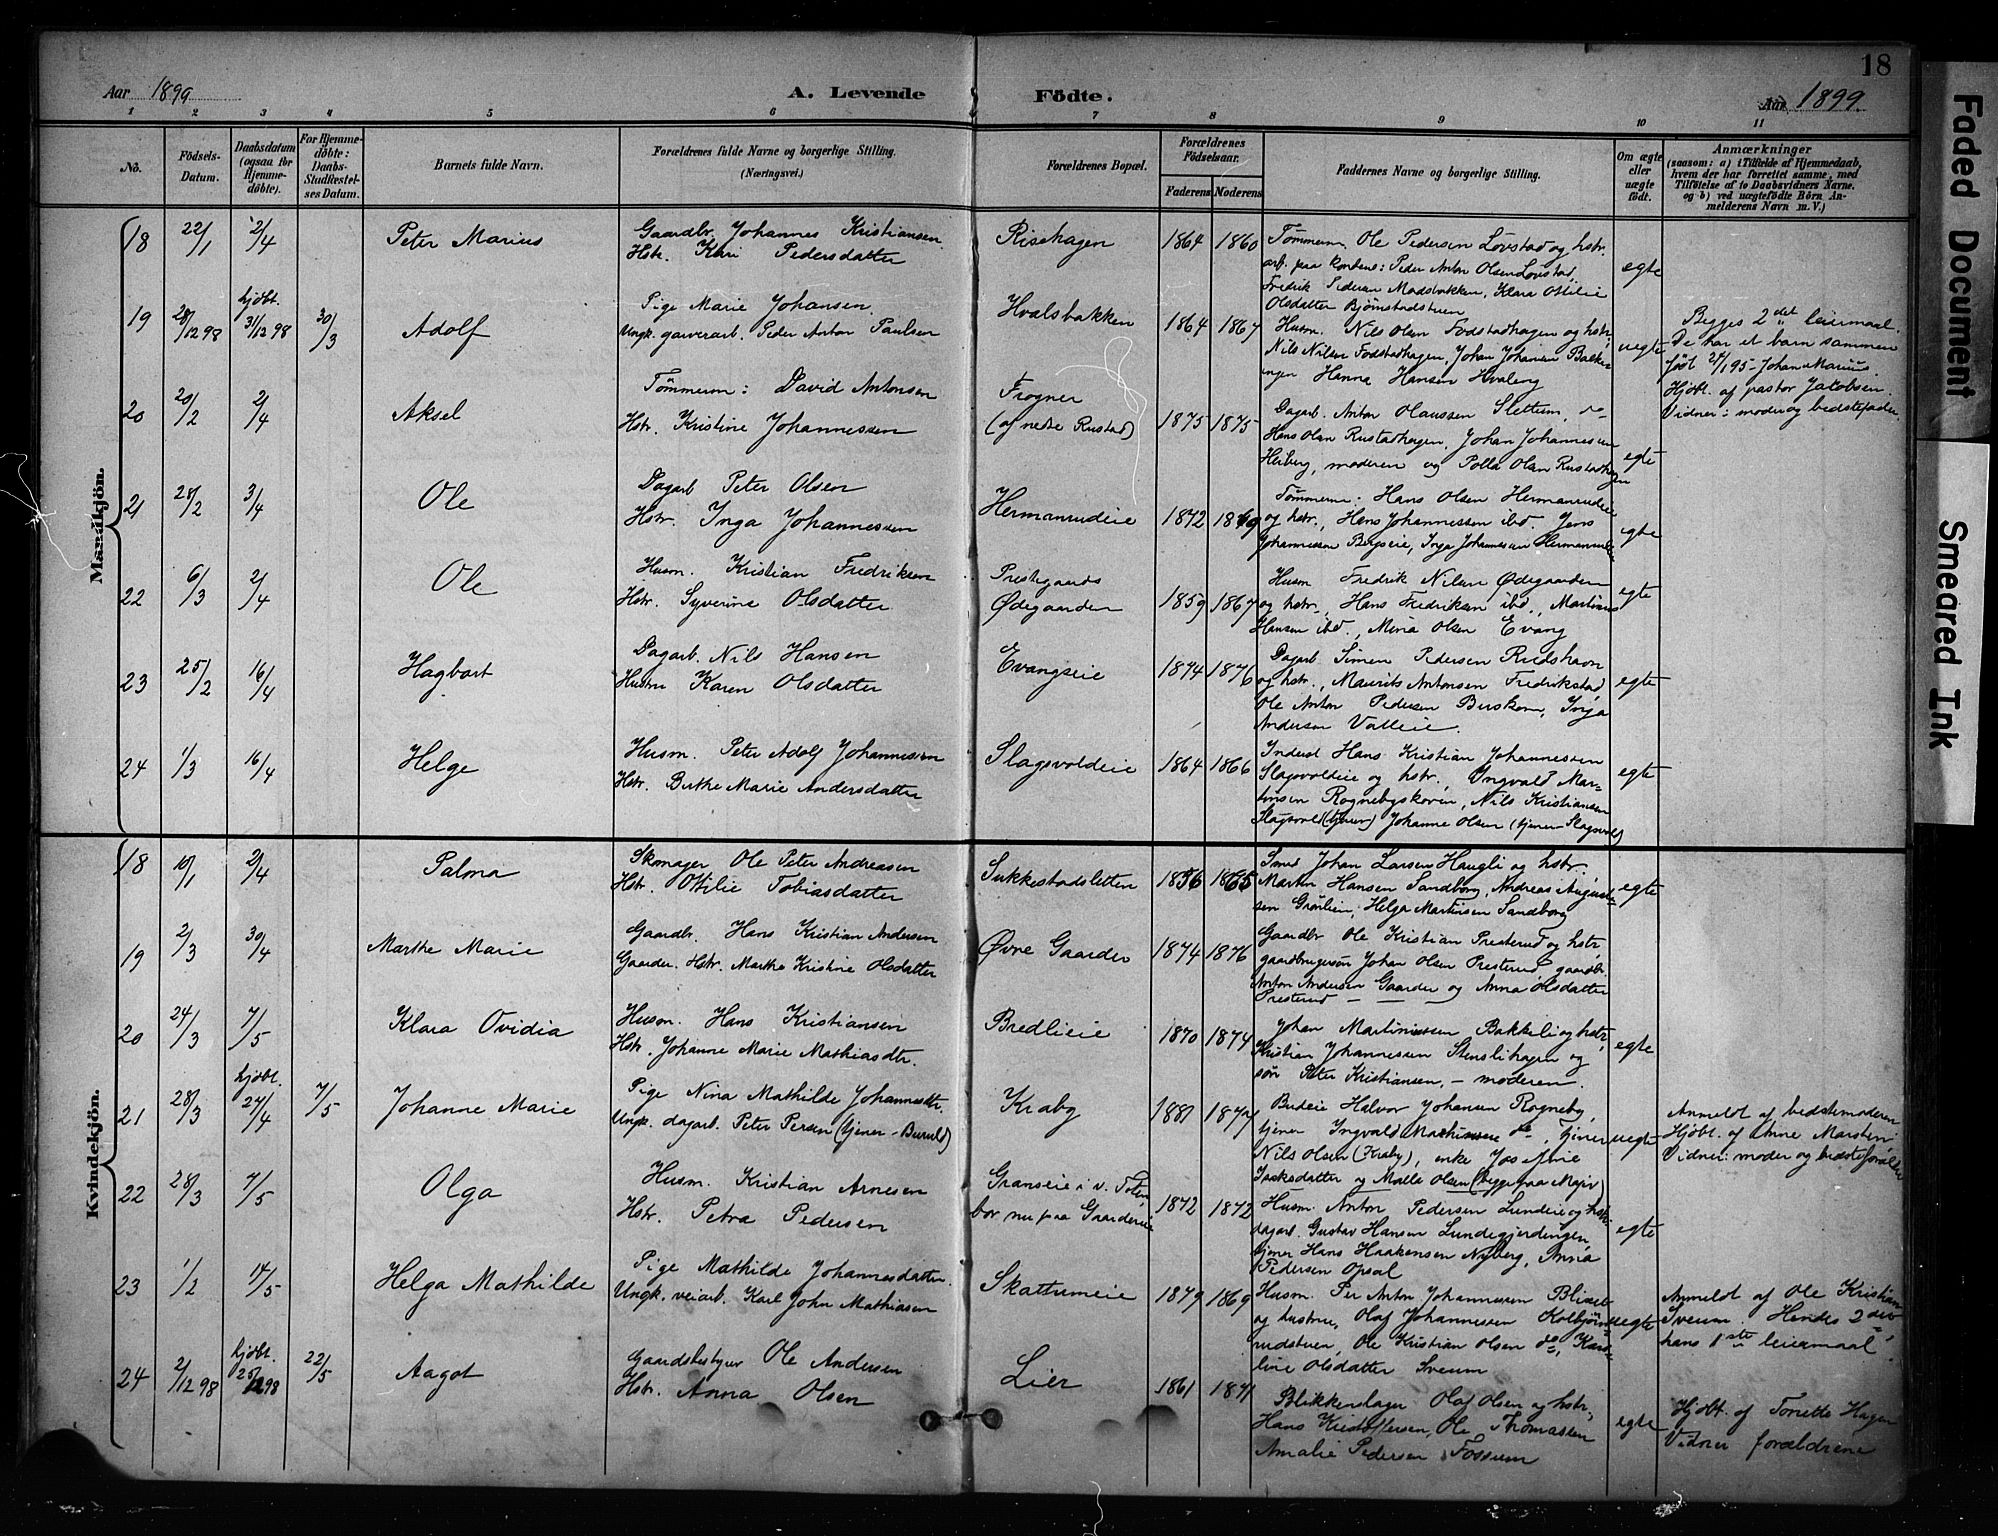 18
Aar 1899
A. Levende Födte.
Aar 1899.
1 2 3 4 5 6 7 8 9 10 11
No.
Födsels-Datum.
Daabsdatum (ogsaa for Hjemme-döbte).
For Hjemme-döbte: Daabs-Stadfæstel-ses Datum.
Barnets fulde Navn.
Forældrenes fulde Navne og borgerlige Stilling.
(Næringsvei.)
Forældrenes Bopæl.
Forældrenes Födselsaar.
Faderens Moderens
Faddernes Navne og borgerlige Stilling.
Om ægte eller uægte født.
Anmærkninger
(saasom: a) i Tilfælde af Hjemmedaab,
hvem der har forrettet samme, med
Tilföielse af to Daabsvidners Navne.
og b) ved uægtefödte Börn An-
melderens Navn m. V.)
Mandkjön.
18 22/1 2/4 Peter Marius
Gaardbr. Johannes Kristiansen
Hstr. Kari Pedersdatter
Risehagen 1864 1860
Tömmerm. Ole Pedersen Lovstad og hstr.
arb. paa kontens: Peder Anton Olsen Lovstad,
Fredrik Pedersen Madsbakken, Klara Otilie
Olsdatter Bjørnstadstuen
egte
19 28/12 98 hjdbt. 31/12 98 30/3 Adolf
Pige Marie Johansen.
Ungk. garverarb. Peder Anton Paulsen
Hvalsbakken 1864 1867
Husm. Nils Olsen Fodstadhagen og hstr.
Nils Nilsen Fodstadhagen, Johan Johansen Bakke-
ingen Hanna Hansen Hvaleng
uegte
Begges 2det leiermaal.
De har et barn sammen
født 21/1 95 - Johan Marius.
Hjdbt. af pastor Jacobsen
Vidner: moder og bedstefader
20 20/2 2/4 Aksel
Tömmerm: David Antonsen
Hstr. Kristine Johannessen
Frogner
(og nedre Rustad) 1875 1875
Dagarb. Anton Olaussen Slettum, do
Hans Olsen Rustadhagen, Johan Johannessen
Heiberg, moderen og Polla Olsen Rustadhagen
egte
21 28/2 3/4 Ole
Dagarb Peter Olsen
Hstr. Inga Johannessen
Hermanrudeie 1872 1869
Tömmerm. Hans Olsen Hermanrudeie
og hstr., Hans Johannessen ibd. Jens
Johannessen Bergseie, Inga Johannessen Hermanrudeie
egte
22 6/3 2/4 Ole
Husm. Kristian Fredriksen
Hstr. Syverine Olsdatter
Prestegaards
Ødegaarden 1859 1867
Husm Fredrik Nilsen Ødegaarden
og hstr., Hans Fredriksen ibd., Martinus
Hansen ibd., Mina Olsen Evang
egte
23 25/2 16/4 Hagbart
Dagarb. Nils Hansen
Hustru Karen Olsdatter
Evangseie 1874 1876
Dagarb. Simen Pedersen Rudshavn
og hstr., Maurits Antonsen Fredrikstad
Ole Anton Pedersen Buskem, Inga
Andersen Valleie.
egte
24 1/3 16/4 Helge
Husm. Peter Adolf Johannessen
Hstr. Berthe Marie Andersdatter
Slagsvoldeie 1864 1866
Inderst Hans Kristian Johannessen
Slagsvoldeie og hstr., Yngvald Mar-
tinsen Rognebyskoven, Nils Kristiansen
Slagsvold (tjener) Johanne Olsen (tjener-Slagsvold)
egte
Kvindekjön.
18 10/1 2/4 Palma
Skomager Ole Peter Andreasen
Hstr. Otilie Tobiasdatter
Sukkestadsletten 1856 1865
Smed Johan Larsen Haugli og hstr.
Martin Hansen Sandborg, Andreas August-
sen Grönlien, Helga Martinsen Sandborg
egte
19 2/3 30/4 Marthe Marie
Gaardbr. Hans Kristian Andersen
Gaarder. Hstr. Marthe Kristine Olsdatter
Øvre Gaarder 1874 1876
Gaardbr Ole Kristian Presterud og hstr
gaardbrugesön Johan Olsen Presterud, gaardbr.
Anton Andersen Gaarder og Anna Olsdatter
Presterud
20 24/3 7/5 Klara Ovidia
Husm. Hans Kristiansen
Hstr. Johanne Marie Mathiasdtr.
Bredlieie 1870 1874
Johan Martiniussen Bakkeli og hstr,
Kristian Johannessen Stenslihagen og
sön Peter Kristiansen, - moderen.
egte
21 28/3 hjdbt. 24/4 7/5 Johanne Marie
Pige Nina Mathilde Johannesdtr.
Ungk. dagarb. Peter Persen (tjener-Buruld)
Kraby 1881 1877
Budeie Halvor Johansen Rogneby,
tjener Ingvald Mathinsen do, tjener
Nils Olsen (Kraby), enke Josefine
Isaksdatter og Malla Olsen (begge paa Majer)
uegte
Anmeldt af bedstemoderen
Hjdbt. af Anne Marsten
Vidner: moder og bedsteforældre
22 28/3 7/5 Olga
Husm. Kristian Arnesen
Hstr. Petra Pedersen
Granseie i v. Toten
bor nu paa Gaardereie 1872 1872
Husm. Anton Pedersen Lundeie og hstr
dagarb. Gustav Hansen Lundegjerdingen
tjener Hans Haakensen Nyberg, Anna
Pedersen Opsal
egte
23 1/2 14/5 Helga Mathilde
Pige Mathilde Johannesdatter.
Ungk. veiarb. Karl John Mathiasen
Skattumeie 1879 1869
Husm. Per Anton Johannessen Blixet
og hustru, Olaf Johannessen Kolbjørn-
rudstuen, Ole Kristian Olsen do, Karo-
line Olsdatter Sveum
uegte
Anmeldt af Ole Kristian
Sveum. Hendes 2det
hans 1ste leiermaal.
24 2/12 98 hjdbt. 25/12 98 22/5 Aagot
Gaardsbestyrer Ole Andersen
Hstr. Anna Olsen
Lier 1861 1871
Blikkenslager Olaf Olsen og hstr.,
Hans Kristoffersen, Ole Thomassen
Amalie Pedersen Fossum
egte
Hjdbt. af Tonette Hagen
Vidner forældrene
Faded Document
Smeared Ink